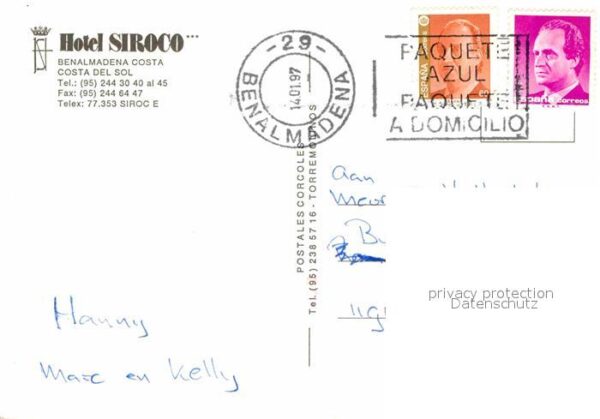 Hotel SIROCO ***
BENALMADENA COSTA
COSTA DEL SOL
Tel.: (95) 244 30 40 al 45
Fax: (95) 244 64 47
Telex: 77.353 SIROC E
-29-
14.01.97
BENALMADENA
PAQUETE
AZUL
PAQUETE
A DOMICILIO
ESPAÑA
correos
POSTALES CORCOLES
Tel. (95) 238 57 16 - TORREMOLINOS
Aan
Hanny
Marc en Kelly
privacy protection
Datenschutz